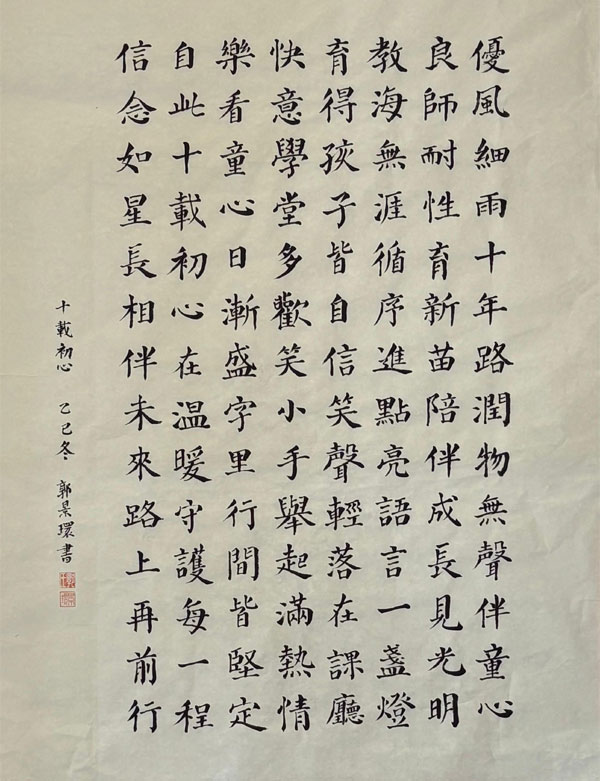 優風細雨十年路潤物無聲伴童心
良師耐性育新苗陪伴成長見光明
教海無涯循序進點亮語言一盞燈
育得孩子皆自信笑聲輕落在課廳
快意學堂多歡笑小手舉起滿熱情
樂看童心日漸盛字里行間皆堅定
自此十載初心在温暖守護每一程
信念如星長相伴未來路上再前行
十載初心 乙巳冬 郭景環書